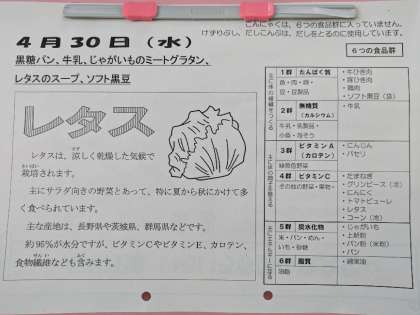 こんにゃくは、6つの食品群に入っていません。
けずりぶし、だしこんぶは、だしをとるのに使用しています。
4月30日(水)
黒糖パン、牛乳、じゃがいものミートグラタン、
レタスのスープ、ソフト黒豆
レタス
レタスは、涼しく乾燥した気候で
栽培されます。
主にサラダ向きの野菜とあって、特に夏から秋にかけて多
く食べられています。
主な産地は、長野県や茨城県、群馬県などです。
約95%が水分ですが、ビタミンCやビタミンE、カロテン、
食物繊維なども含みます。
6つの食品群
1群 たんぱく質
魚・肉・卵・
豆・豆製品
・牛ひき肉
・豚ひき肉
・鶏肉
・ソフト黒豆(袋)
2群 無機質
(カルシウム)
牛乳・乳製品・
小魚・海そう
・牛乳
3群 ビタミンA
(カロテン)
緑黄色野菜
・にんじん
・パセリ
4群 ビタミンC
その他の野菜・果物・
・たまねぎ
・グリンピース(冷)
・にんにく
・トマトピューレ
・レタス
・コーン(冷)
5群 炭水化物
米・パン・めん・
いも・砂糖
・じゃがいも
・上新粉
・パン粉(米粉)
・パン
6群 脂質
油脂
・綿実油